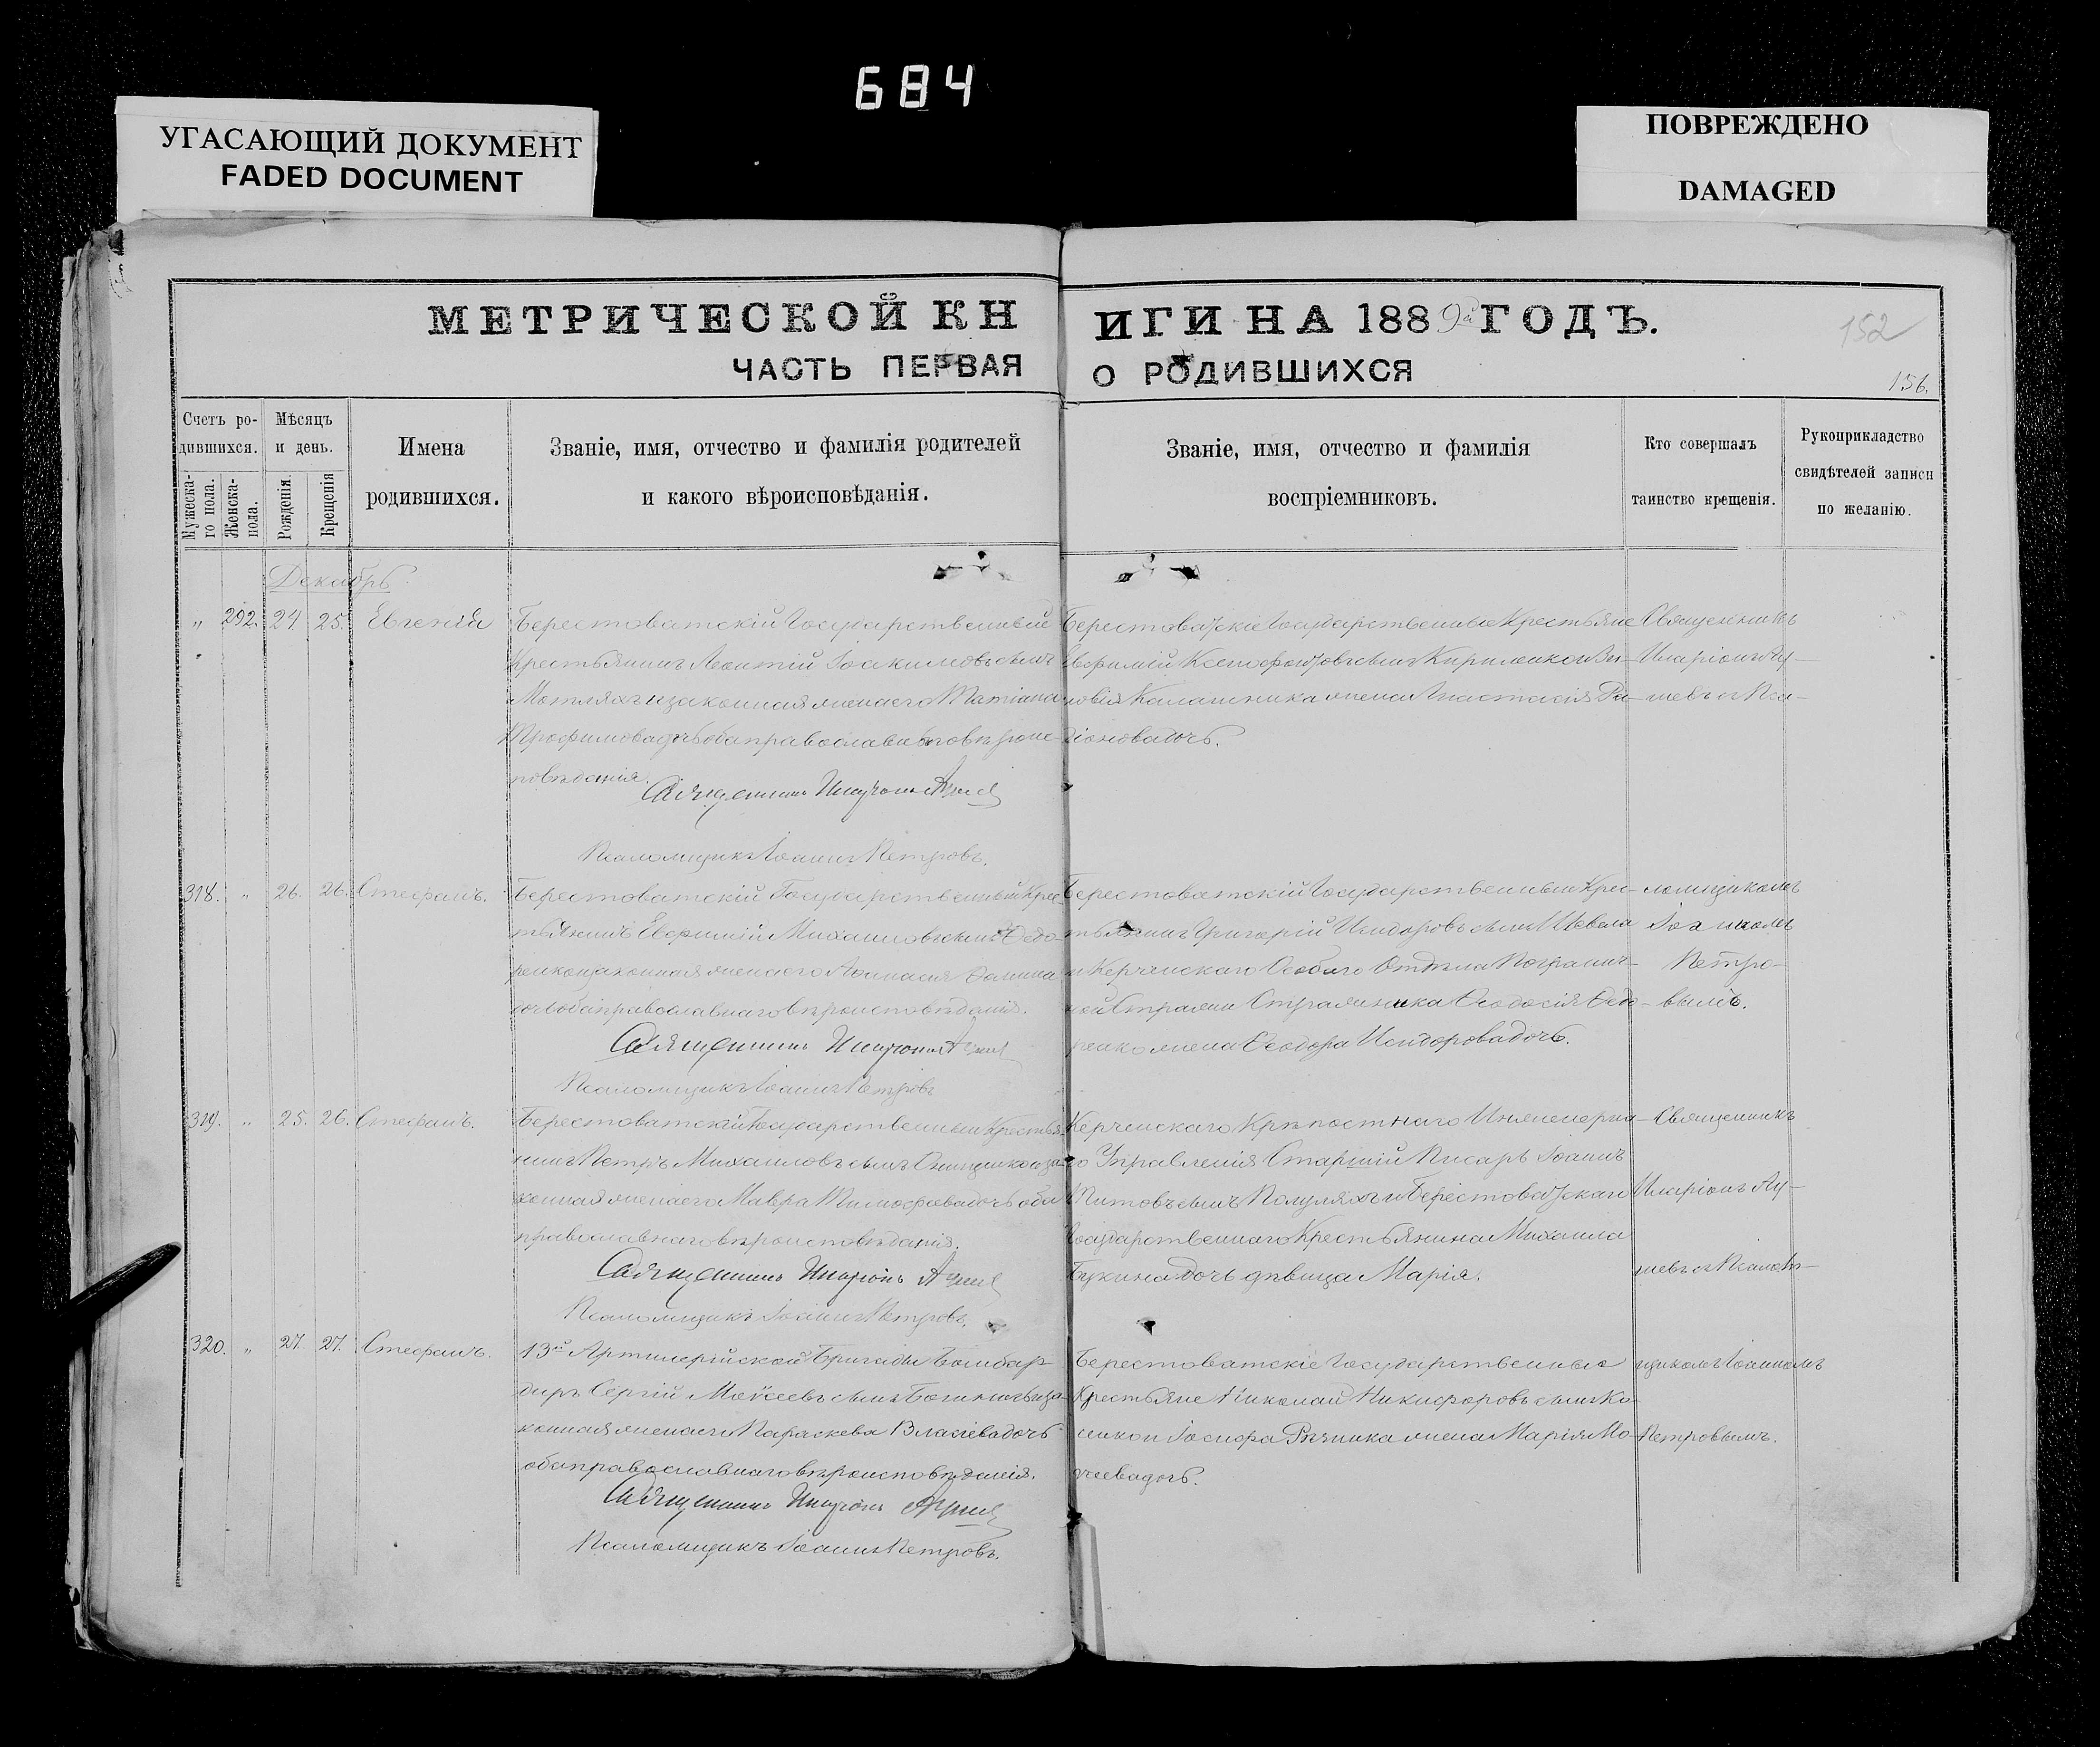 684
УГАСАЮЩИЙ ДОКУМЕНТ
FADED DOCUMENT
ПОВРЕЖДЕНО
DAMAGED
МЕТРИЧЕСКОЙ КНИГИ НА 1889й ГОДЪ.
152
ЧАСТЬ ПЕРВАЯ О РОДИВШИХСЯ
156.
Счетъ родившихся.
Мужескаго пола.
Женска-пола.
Мѣсяцъ и день.
Рожденія.
Крещенія
Имена
родившихся.
Званіе, имя, отчество и фамилія родителей
и какого вѣроисповѣданія.
Званіе, имя, отчество и фамилія
воспріемниковъ.
Кто совершалъ
таинство крещенія.
Рукоприкладство
свидѣтелей записи
по желанію.
Декабрь.
" 292. 24. 25. Евгенія
Берестоватскій Государственный
Крестьянинъ Леонтій Іоакимовъ сынъ
Мотляхъ и законная жена его Татіана
Трофимова дочь оба православнаго вѣроис-
повѣданія.
Священникъ Иларіонъ
Псаломщикъ Іоаннъ Петровъ.
Берестоватскіе Государственные Крестьяне
Евфимій Ксенофонтовъ сынъ Кириленко и Зи-
новія Калашника жена Анастасія Ра-
діонова дочь.
Священникъ
Иларіонъ
318. " 26. 26. Стефанъ.
Берестоватскій Государственный Крес-
тьянинъ Евфимій Михаиловъ сынъ Федо-
ренко и законная жена его
дочь оба православнаго вѣроисповѣданія.
Священникъ Иларіонъ
Псаломщикъ Іоаннъ Петровъ
Берестоватскій Государственный Крес-
тьянинъ Григорій Исидоровъ сынъ Шевела
и Керченскаго Особаго Отдѣла Погранич-
ной Стражи Стражника Ѳеодосія Ѳедо-
ренко жена Ѳеодора Исидорова дочь.
ломщикомъ
Іоанномъ
Петро-
вымъ.
319. " 25. 26. Стефанъ.
Берестоватскій Государственный Крестья-
нинъ Петръ Михаиловъ сынъ Онищенко и за-
конная жена его Мавра Тимофѣева дочь оба
православнаго вѣроисповѣданія.
Священникъ Иларіонъ
Псаломщикъ Іоаннъ Петровъ.
Керченскаго Крѣпостнаго Инженерна-
го Управленія Старшій Писарь Іоаннъ
Титовъ сынъ Полуляхъ и Берестоватскаго
Государственнаго Крестьянина Михаила
Букина дочь дѣвица Марія.
Священникъ
Иларіонъ
320. " 27. 27. Стефанъ.
13й Артилерійской Бригады Бомбар-
диръ Сергій Моѵсеевъ сынъ и за-
конная жена его Параскева Власіева дочь
оба православнаго вѣроисповѣданія.
Священникъ Иларіонъ
Псаломщикъ Іоаннъ Петровъ.
Берестоватскіе Государственные
Крестьяне Николай Никифоровъ сынъ
и Іосифа жена Марія Мо-
ѵсеева дочь.
щикомъ Іоанномъ
Петровымъ.